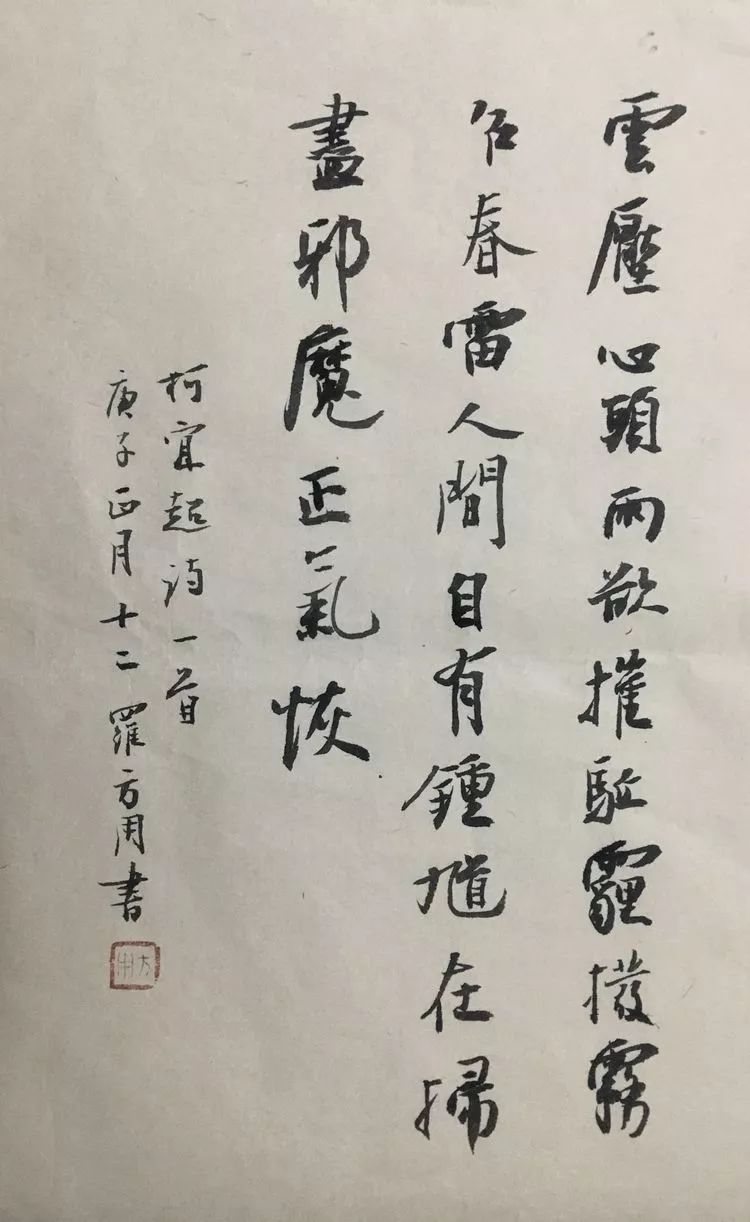 雲壓心頭雨欲摧駈霾撥霧
召春雷人間自有鍾馗在掃
盡邪魔正氣恢
柯宜超詩一首
庚子正月十二羅方用書
方用